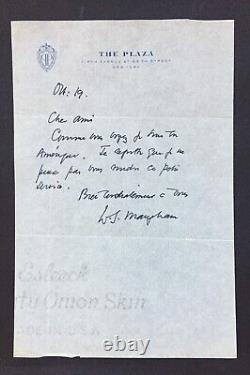 THE PLAZA
FIFTH AVENUE AT 59TH STREET
NEW YORK
Oct. 19.
Cher ami
Comme vous voyez je suis en
Amérique. Je regrette que je ne
puisse pas vous rendre ce petit
service.
Bien cordialement à vous
W. S. Maugham
Esleeck
Onion Skin
MADE IN U.S.A